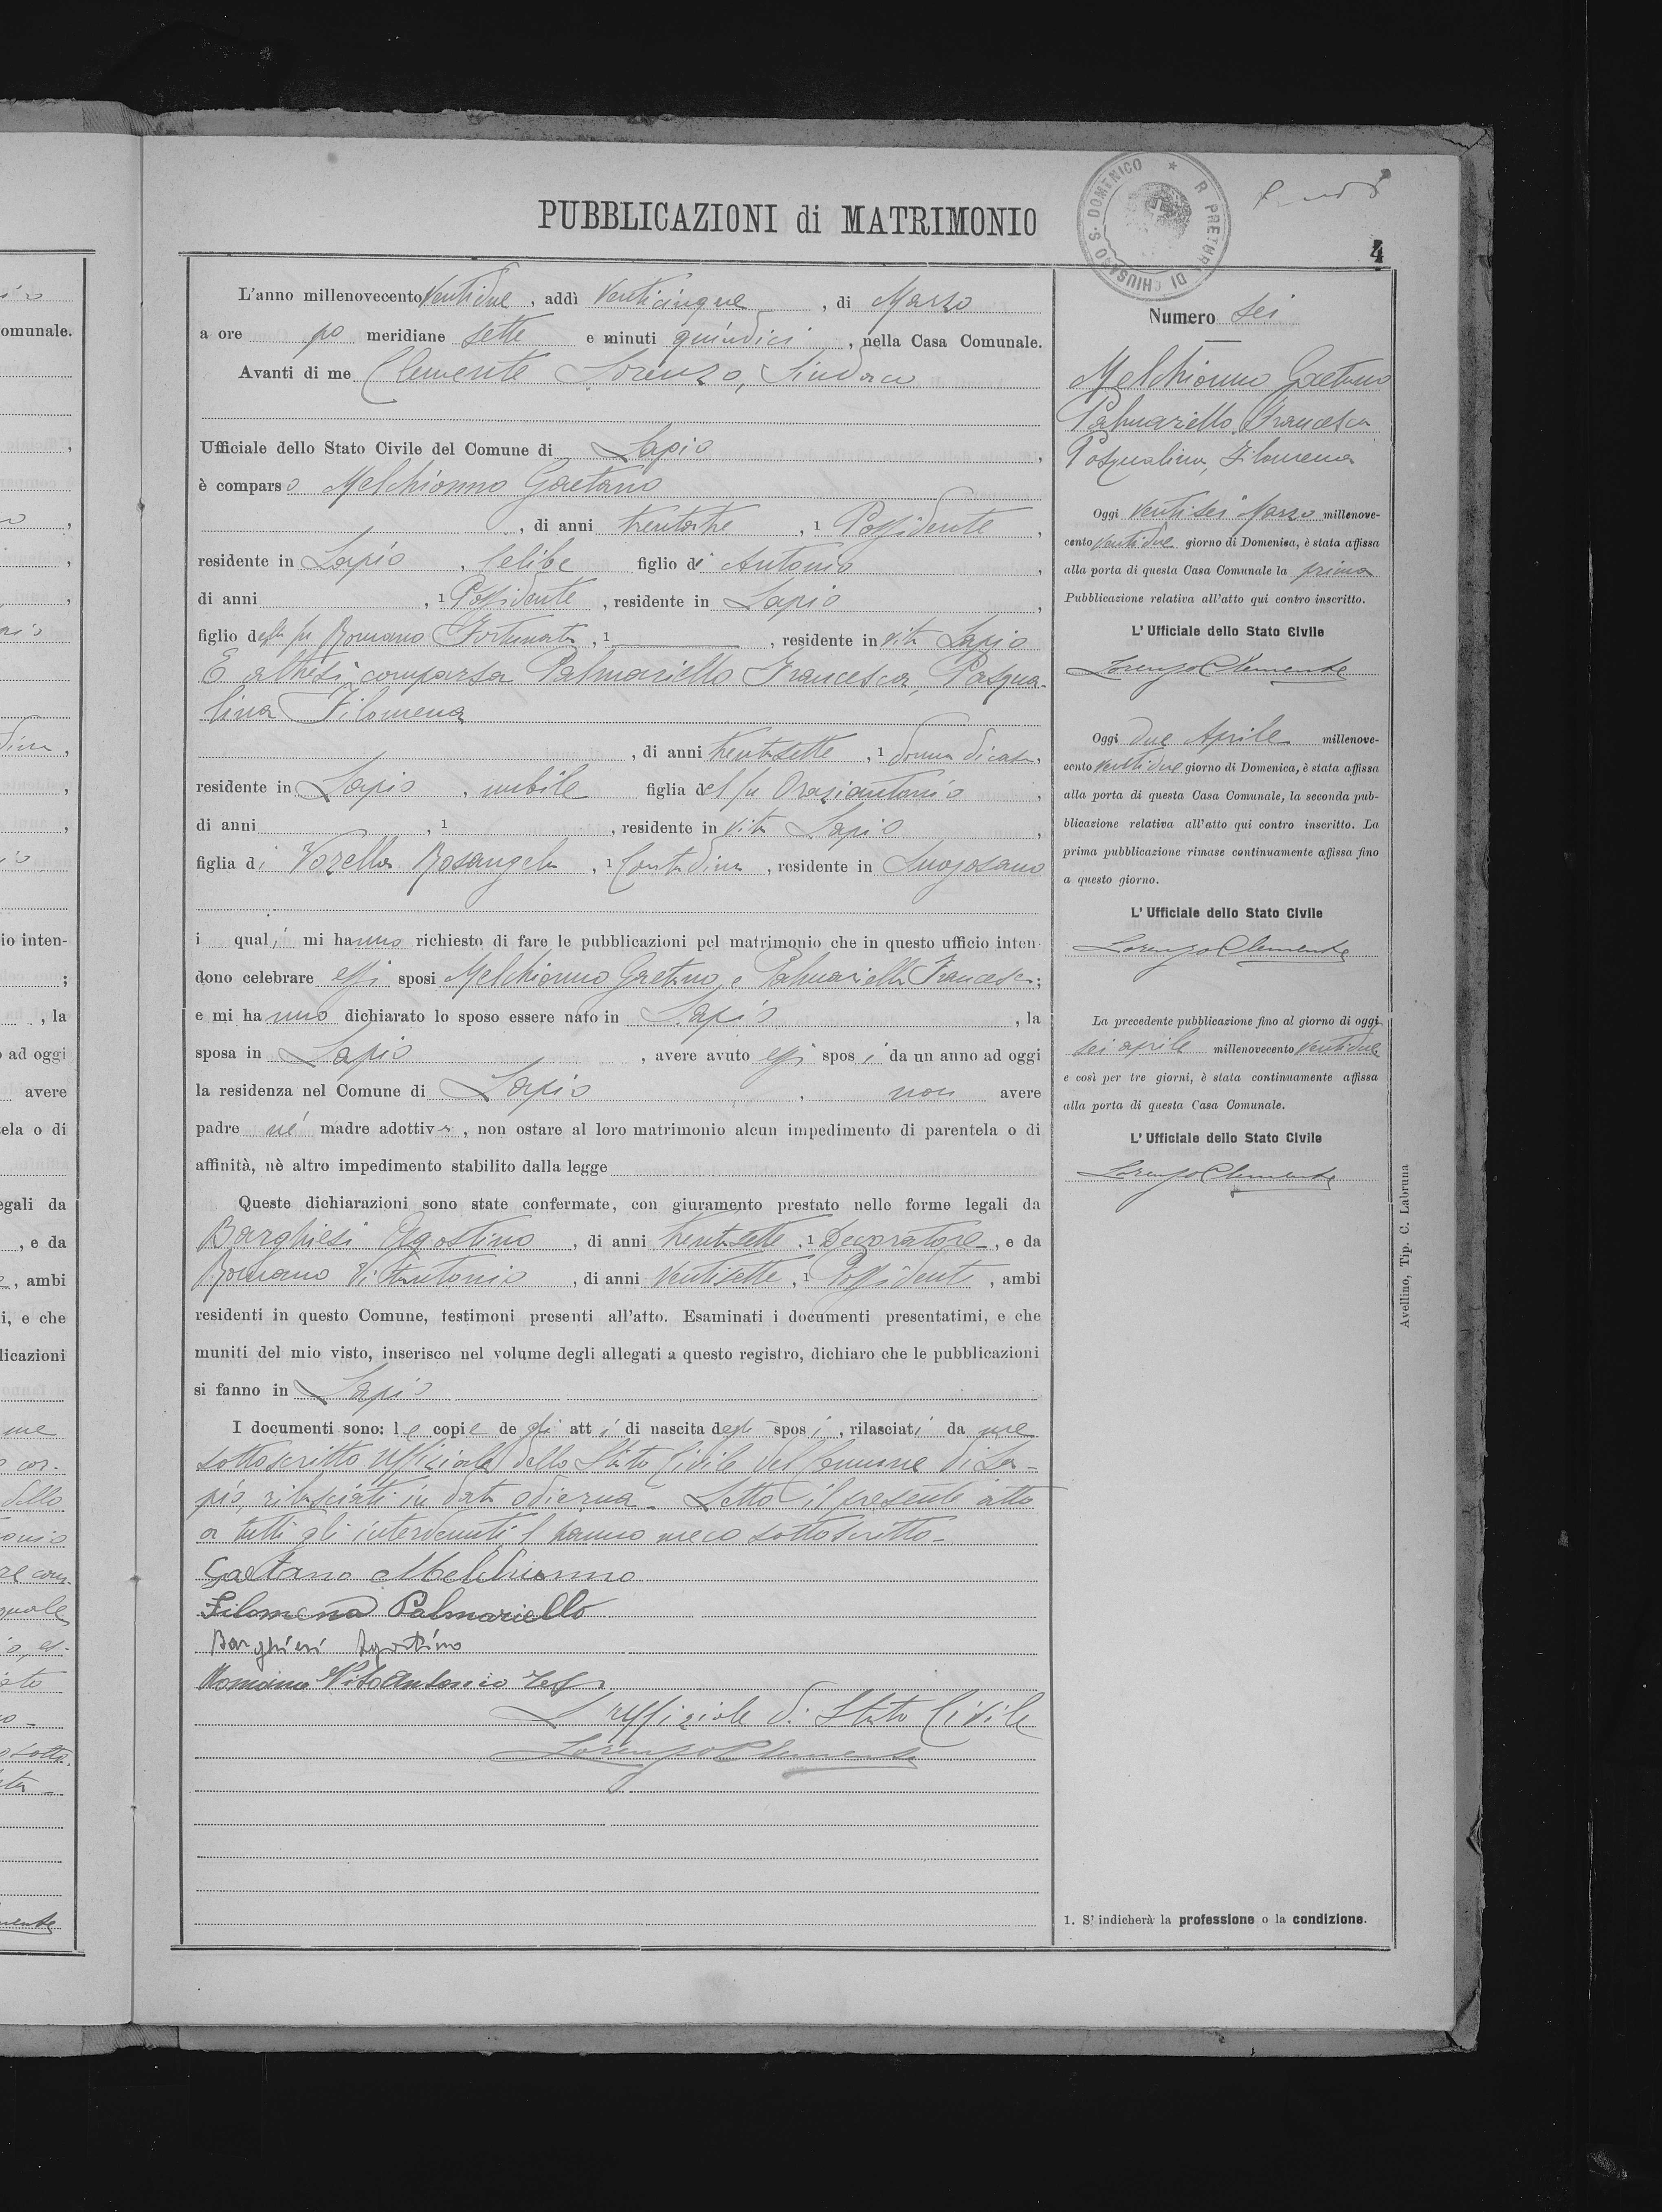 PUBBLICAZIONI di MATRIMONIO
R PRETURA DI CHIUSANO S. DOMENICO
4
L'anno millenovecento Ventidue, addì Venticinque, di Marzo
a ore po meridiane sette e minuti quindici, nella Casa Comunale.
Avanti di me Clemente Lorenzo, Sindaco
Ufficiale dello Stato Civile del Comune di Lapio,
è comparso Melchionno Gaetano
, di anni trentatre, 1 Possidente,
residente in Lapio, celibe figlio di Antonio,
di anni , 1 Possidente, residente in Lapio,
figlio della fu Romano Fortunata, 1 , residente in vita Lapio
E altresì comparsa Palmariello Francesca, Pasqua-
lina Filomena
, di anni trentasette, 1 donna di casa,
residente in Lapio, nubile figlia del fu Oraziantonio,
di anni , 1 , residente in vita Lapio,
figlia di Vozella Rosangela, 1 Contadina, residente in Luogosano
i quali mi hanno richiesto di fare le pubblicazioni pel matrimonio che in questo ufficio inten-
dono celebrare essi sposi Melchionno Gaetano, e Palmariello Francesca;
e mi hanno dichiarato lo sposo essere nato in Lapio, la
sposa in Lapio, avere avuto essi sposi da un anno ad oggi
la residenza nel Comune di Lapio, non avere
padre nè madre adottiva, non ostare al loro matrimonio alcun impedimento di parentela o di
affinità, nè altro impedimento stabilito dalla legge
Queste dichiarazioni sono state confermate, con giuramento prestato nelle forme legali da
Barghiesi Agostino, di anni trentasette, 1 Decoratore, e da
Romano Vitantonio, di anni ventisette, 1 Possidente, ambi
residenti in questo Comune, testimoni presenti all'atto. Esaminati i documenti presentatimi, e che
muniti del mio visto, inserisco nel volume degli allegati a questo registro, dichiaro che le pubblicazioni
si fanno in Lapio
I documenti sono: le copie degli atti di nascita degli sposi, rilasciati da me
sottoscritto Uffiziale dello Stato Civile del Comune di La-
pio, rilasciati in data odierna. Letto il presente atto
a tutti gli intervenuti l'hanno meco sottoscritto.
Gaetano Melchionno
Filomena Palmariello
Barghiesi Agostino
Romano Vitoantonio
L'uffiziale di Stato Civile
Lorenzo Clemente
Numero sei
Melchionno Gaetano
Palmariello Francesca
Pasqualina, Filomena
Oggi ventisei Marzo millenove-
cento Ventidue giorno di Domenica, è stata affissa
alla porta di questa Casa Comunale la prima
Pubblicazione relativa all'atto qui contro inscritto.
L'Ufficiale dello Stato Civile
Lorenzo Clemente
Oggi due Aprile millenove-
cento Ventidue giorno di Domenica, è stata affissa
alla porta di questa Casa Comunale, la seconda pub-
blicazione relativa all'atto qui contro inscritto. La
prima pubblicazione rimase continuamente affissa fino
a questo giorno.
L'Ufficiale dello Stato Civile
Lorenzo Clemente
La precedente pubblicazione fino al giorno di oggi
sei aprile millenovecento Ventidue
e così per tre giorni, è stata continuamente affissa
alla porta di questa Casa Comunale.
L'Ufficiale dello Stato Civile
Lorenzo Clemente
1. S'indicherà la professione o la condizione.
Avellino, Tip. C. Labruna
omunale.
io inten-
;
, la
ad oggi
avere
ela o di
egali da
, e da
, ambi
i, e che
licazioni